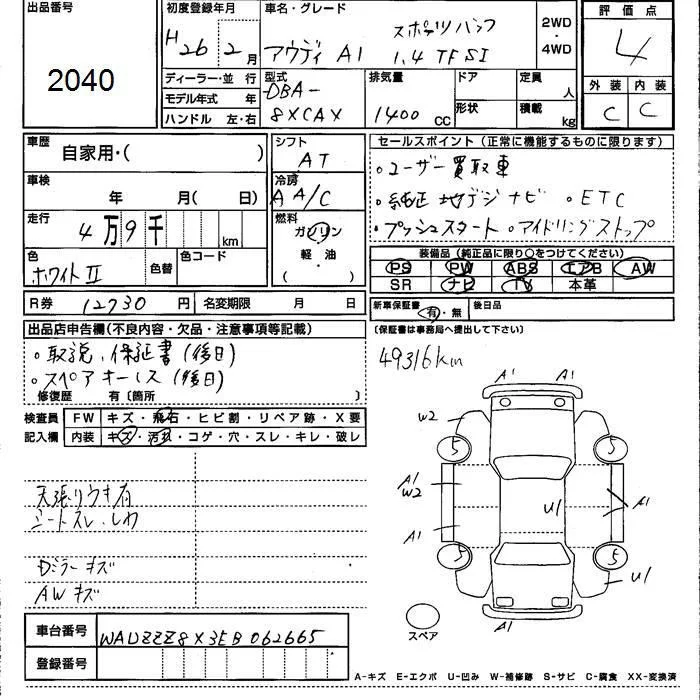 出品番号
2040
初度登録年月
H26 2月
車名・グレード
スポーツバック
アウディ A1 1.4 TFSI
2WD
・
4WD
評価点
4
外装 内装
C C
ディーラー・並 行
モデル年式 年
ハンドル 左・右
型式
DBA-
8XCAX
排気量
1400 CC
ドア
形状
定員
人
積載
kg
車歴
自家用・( )
車検
年 月( 日)
走行
4万9千 km
色
ホワイトII
色替
色コード
シフト
AT
冷房
AA/C
燃料
ガソリン
軽・油
R券 12730 円 名変期限 月 日
セールスポイント(正常に機能するものに限ります)
・ユーザー買取車
・純正地デジナビ ・ETC
・プッシュスタート・アイドリングストップ
装備品(純正品に限り○をつけてください)
PS PW ABS エアB AW
SR ナビ TV 本革
新車保証書 有・無 後日品
(保証書は事務局へ提出して下さい)
出品店申告欄(不良内容・欠品・注意事項等記載)
・取説、保証書(後日)
・スペアキーレス(後日)
修復歴 有〔箇所 〕
検査員 FW キズ・飛石・ヒビ割・リペア跡・X要
記入欄 内装 キズ・汚れ・コゲ・穴・スレ・キレ・破レ
天張りウキ有
シートスレ、しわ
Dミラーキズ
AWキズ
車台番号 WAUZZZ8X3EB062665
登録番号
49316km
A1 A1
W2
5 5
A1
W2
U1
A1
A1
5 5
U1
A1
スペア
A-キズ E-エクボ U-凹み W-補修跡 S-サビ C-腐食 XX-変換済